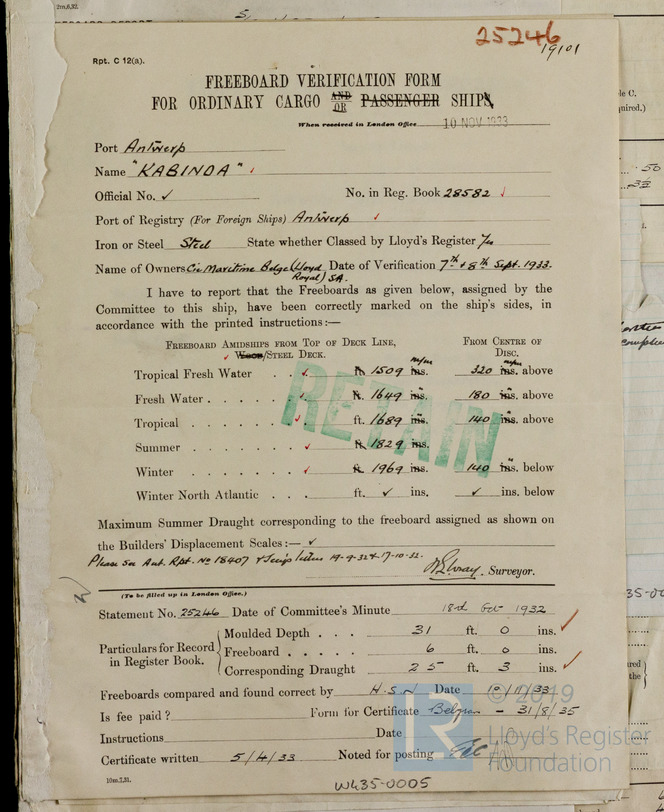 2m,6,32.
25246
19101
Rpt. C 12(a).
FREEBOARD VERIFICATION FORM
FOR ORDINARY CARGO AND OR PASSENGER SHIPS,
When received in London Office 10 NOV 1933
Port Antwerp
Name "KABINDA"
Official No. ✓ No. in Reg. Book 28582
Port of Registry (For Foreign Ships) Antwerp
Iron or Steel Steel State whether Classed by Lloyd's Register Yes
Name of Owners Cie Maritime Belge (Lloyd Royal) S.A. Date of Verification 7th & 8th Sept. 1933.
I have to report that the Freeboards as given below, assigned by the
Committee to this ship, have been correctly marked on the ship's sides, in
accordance with the printed instructions:—
FREEBOARD AMIDSHIPS FROM TOP OF DECK LINE, FROM CENTRE OF
WOOD/STEEL DECK. DISC.
Tropical Fresh Water . . ft. 1509 ins. m/m 320 ins. m/m above
Fresh Water . . . . . ft. 1649 ins. 180 ins. above
Tropical . . . . . . . ft. 1689 ins. 140 ins. above
Summer . . . . . . . ft. 1829 ins.
Winter . . . . . . . ft. 1969 ins. 140 ins. below
Winter North Atlantic . . . ft. ✓ ins. ✓ ins. below
RETAIN
Maximum Summer Draught corresponding to the freeboard assigned as shown on
the Builders' Displacement Scales:— ✓
Please see Ant. Rpt. No 18407 & letters 19-9-32 & 17-10-32.
Surveyor.
(To be filled up in London Office.)
Statement No. 25246 Date of Committee's Minute 18th Oct 1932
Particulars for Record in Register Book.
Moulded Depth . . . 31 ft. 0 ins.
Freeboard . . . . . 6 ft. 0 ins.
Corresponding Draught 25 ft. 3 ins.
Freeboards compared and found correct by H.S.N Date 10/11/33
Is fee paid? Form for Certificate Belgian - 31/8/35
Instructions Date
Certificate written 5/4/33 Noted for posting
10m,7,31.
W435-0005
© 2019
Lloyd's Register
Foundation